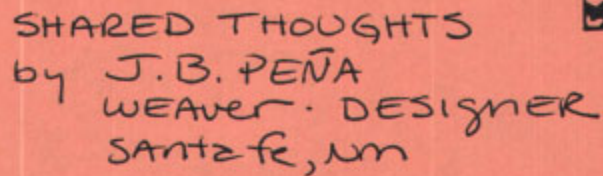 SHARED THOUGHTS
by J.B. PEÑA
WEAver · DESIGNER
SAnta fe, nm